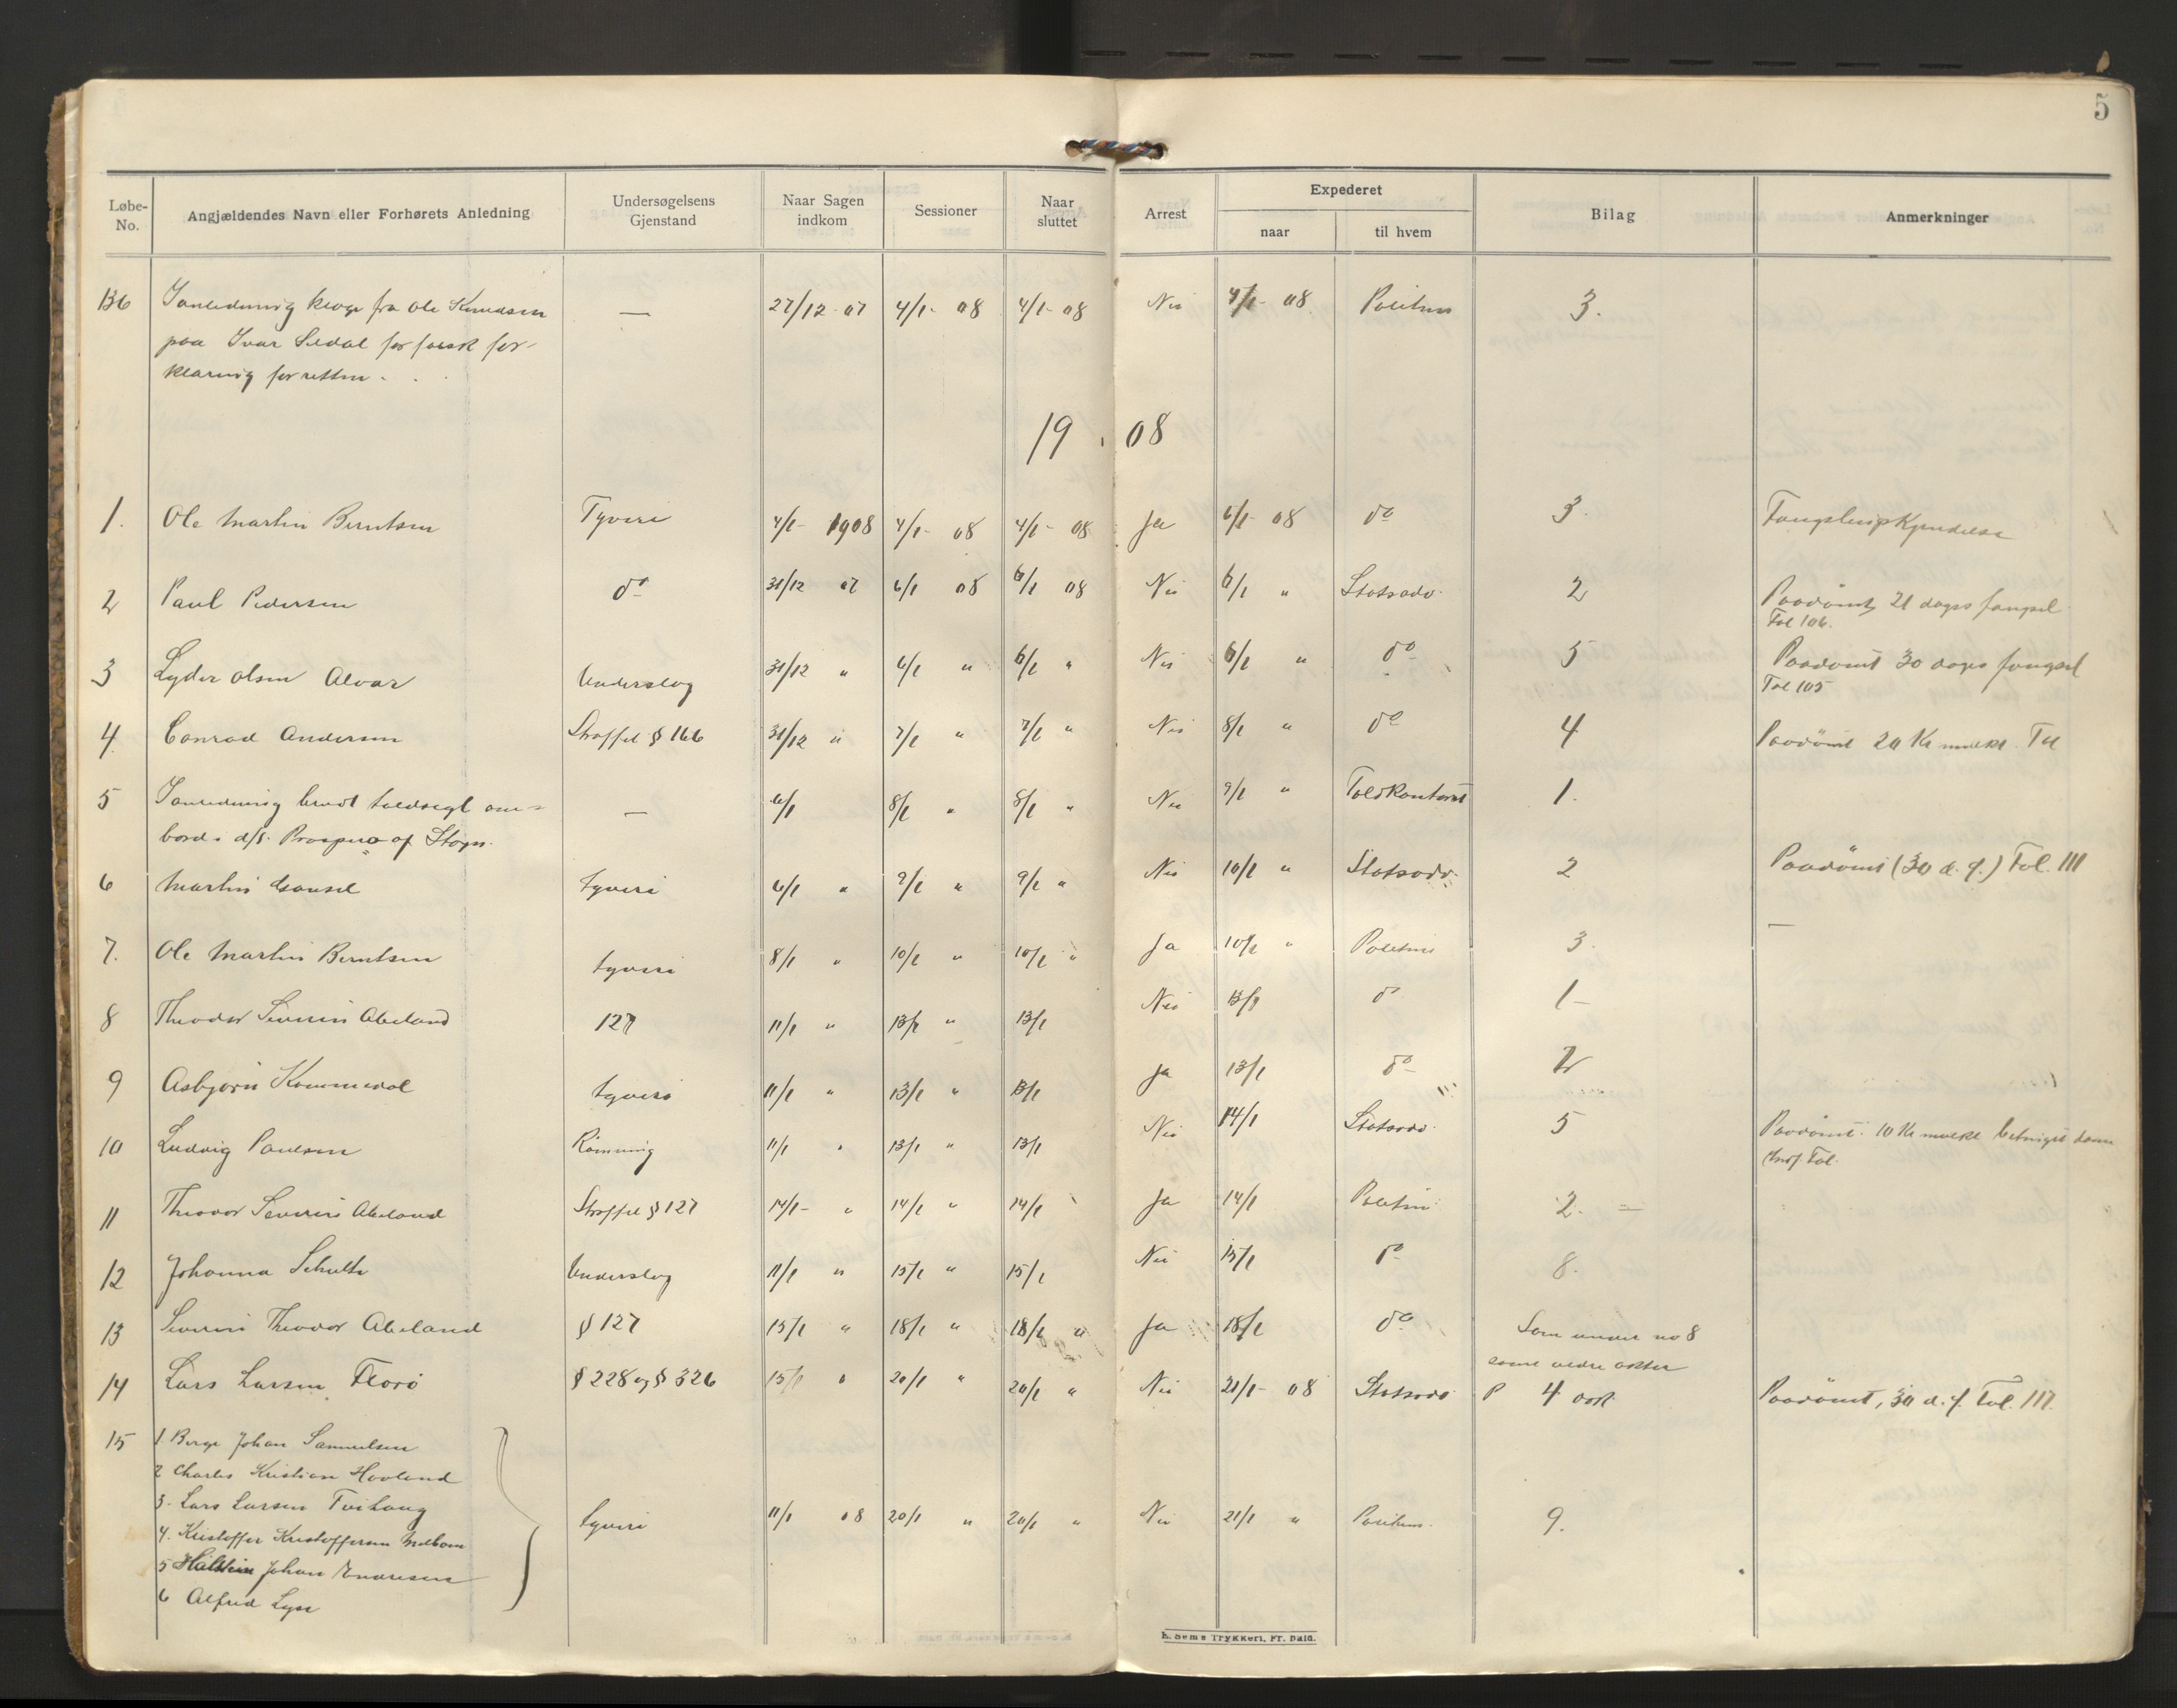 5
Løbe-No. Angjældendes Navn eller Forhørets Anledning Undersøgelsens Gjenstand Naar Sagen indkom Sessioner Naar sluttet Arrest Expederet naar til hvem Bilag Anmerkninger
136 I anledning klage fra Ole Knudsen — 27/12 07 4/1- 08 4/1- 08 Nei 4/1- 08 Politim 3.
paa Ivar Seldal for falsk for-
klaring for retten.
19 08
1. Ole Martin Berntsen Tyveri 4/1- 1908 4/1- 08 4/1- 08 Ja 6/1- 08 do 3. Fængslingskjendelse
2 Paul Pedersen do 31/12 07 6/1 08 6/1 08 Nei 6/1 " Statsadv. 2 Paadömt 21 dages fængsel
Fol 106.
3 Lyder Olsen Alvær Underslag 31/12 " 6/1 " 6/1 " Nei 6/1 " do 5 Paadömt 30 dages fængsel
Fol 105
4 Conrad Andersen Straffel § 166 31/12 " 7/1 " 7/1 " Nei 8/1 " do 4 Paadömt 20 Kr mulkt. Fol
5 I anledning brudt toldsegl om- — 6/1 8/1 " 8/1 " Nei 9/1 " Toldkontoret 1.
bord i d/s. Prospero af Stavn.
6 Martin Hansen tyveri 6/1 " 9/1 " 9/1 " Nei 10/1 " Statsadv. 2 Paadömt (30 d. f.) Fol. 111
7. Ole Martin Berntsen tyveri 8/1 " 10/1 " 10/1 " Ja 10/1 " Politim 3. —
8 Theodor Severin Abeland 127 11/1 " 13/1 " 13/1 Nei 13/1 do 1 —
9 Asbjørn Kommedal tyveri 11/1 " 13/1 " 13/1 Ja 13/1 do 2
10 Ludvig Paulsen Römning 11/1 " 13/1 " 13/1 Nei 14/1 Statsadv. 5 Paadömt. 10 Kr mulkt betinget dom
Fol.
11 Theodor Severin Abeland Straffel § 127 14/1- " 14/1 " 14/1 Ja 14/1 Politim 2. —
12 Johanna Schultz Underslag 11/1 " 15/1 " 15/1 Nei 15/1 do 8.
13 Severin Theodor Abeland § 127 15/1 " 18/1 " 18/1 " Ja 18/1 do Som under no 8
samt ældre akter
14 Lars Larsen Florö § 228 og § 326 15/1 " 20/1 " 20/1 " Nei 21/1- 08 Statsadv P 4 Paadömt, 30 d. f. Fol. 117.
15 1. Berge Johan Samuelsen
2 Charles Kristian Hovland
3. Lars Larsen Tveihaug tyveri 11/1 08 20/1 " 20/1 " Nei 21/1 " Politim. 9.
4. Kristoffer Kristoffersen
5 Halstein Johan Endresen
6 Alfred Lyse
E. Sem's Trykkeri, Fr.hald.